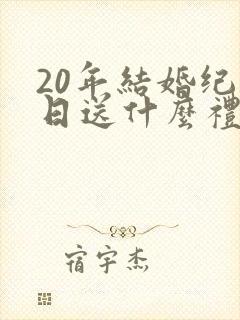 20年結婚纪
日送什麼禮
宿宇杰